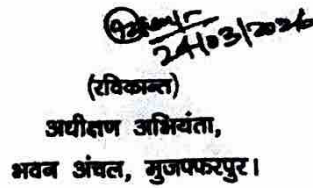 24/03/2026
(रविकान्त)
अधीक्षण अभियंता,
भवन अंचल, मुजफ्फरपुर।